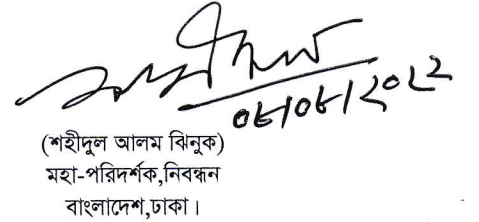 ০৮/০৮/২০২২
(শহীদুল আলম ঝিনুক)
মহা-পরিদর্শক,নিবন্ধন
বাংলাদেশ,ঢাকা।